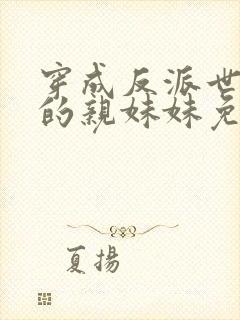 穿成反派世
的親妹妹免
夏揚